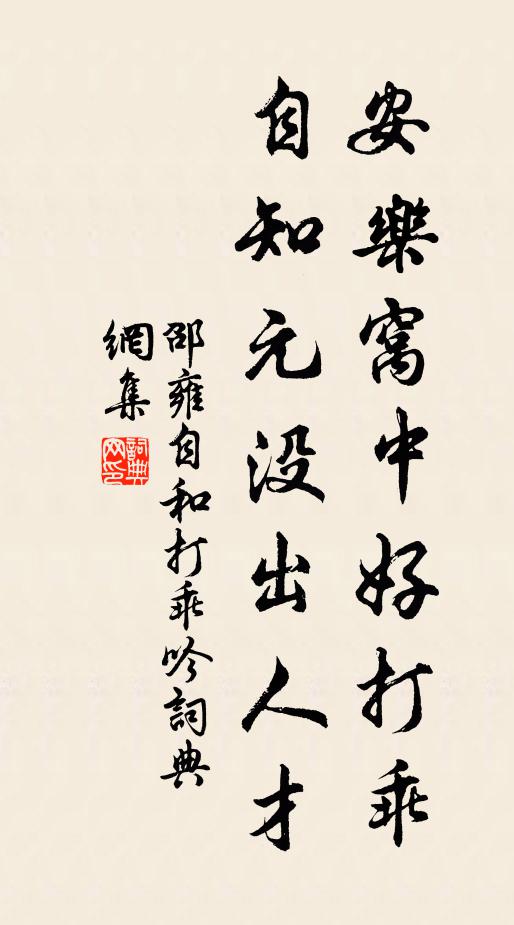 安樂窩中好打乖
自知元没出人才
邵雍自和打乖吟詞典
網集
詞典
网印